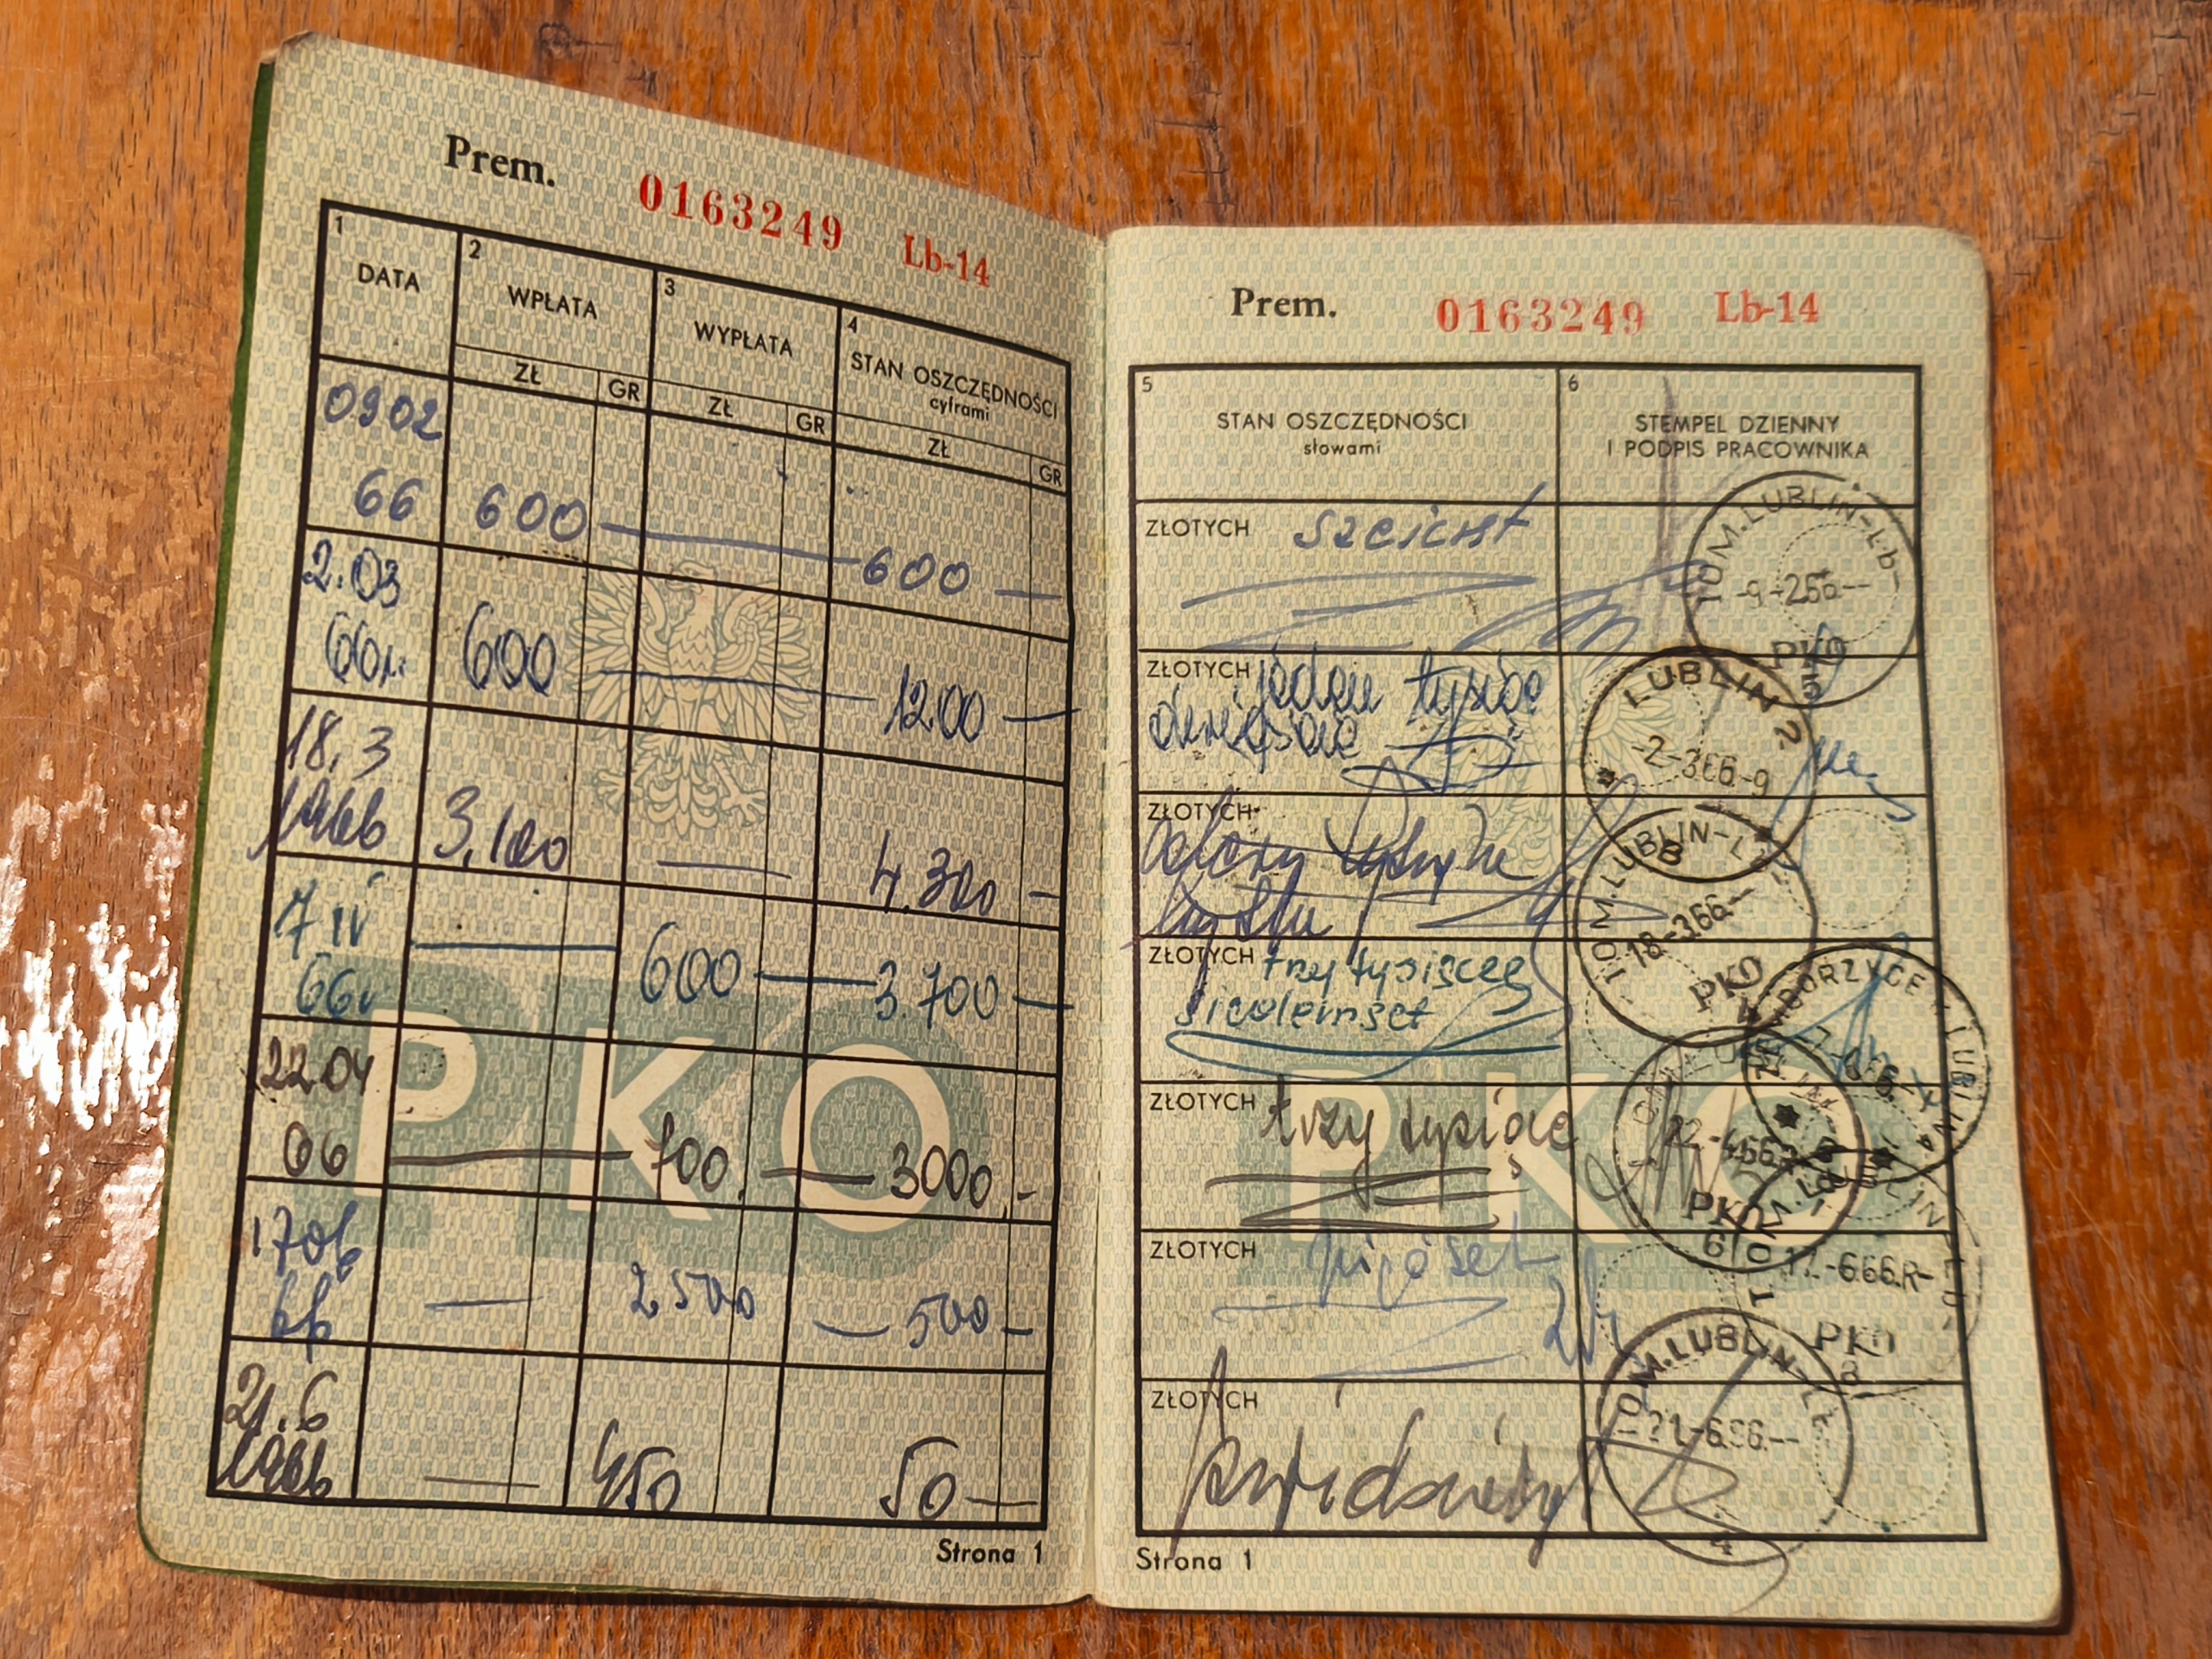 Prem. 0163249 Lb-14
1 DATA
2 WPŁATA
3 WYPŁATA
4 STAN OSZCZĘDNOŚCI
cyframi
ZŁ GR ZŁ GR ZŁ GR
0902
66 600 — 600 —
2.03
66r. 600 — 1200 —
18.3
1966 3.100 — 4.300 —
7 IV
66r — 600 — 3.700 —
22 04
66 — 700. — 3000,-
17 06
66 — 2500 — 500 —
21.6
1966 — 450 50 —
PKO
Strona 1
Prem. 0163249 Lb-14
5 STAN OSZCZĘDNOŚCI
słowami
6 STEMPEL DZIENNY
I PODPIS PRACOWNIKA
ZŁOTYCH sześćset
I OM. LUBLIN-Lb-
-9.-2.66.--
PKO
5
ZŁOTYCH jeden tysiąc
dwieście
LUBLIN 2
-2-3.66.-9
B
ZŁOTYCH cztery tysiące
trzysta
I OM. LUBLIN-L
18.-3.66.--
PKO
4
ZŁOTYCH trzy tysiące
siedemset
ZŁOTYCH trzy tysiące
22.-4.66.
PKO
6
ZŁOTYCH pięćset
I OM. LUBLIN
17.-6.66.R-
PKO
ZŁOTYCH pięćdziesiąt
I OM. LUBLIN-L
21.-6.66.--
4
PKO
Strona 1